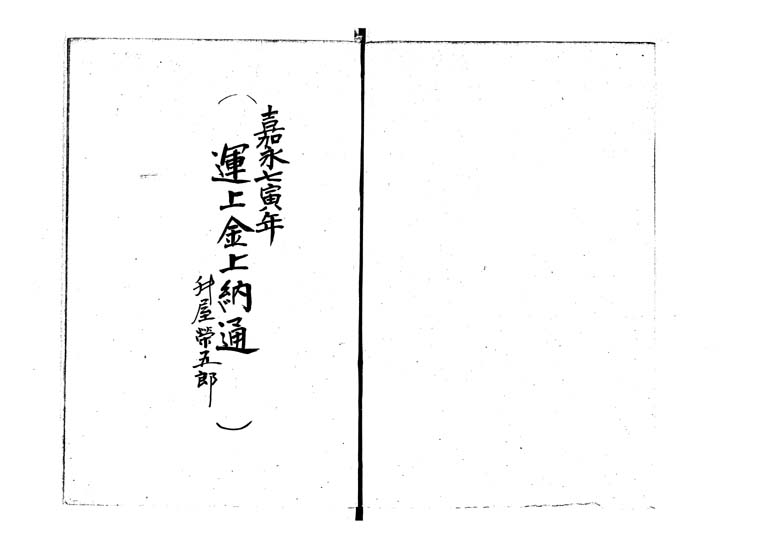 (嘉永七寅年
運上金上納通
升屋榮五郎)